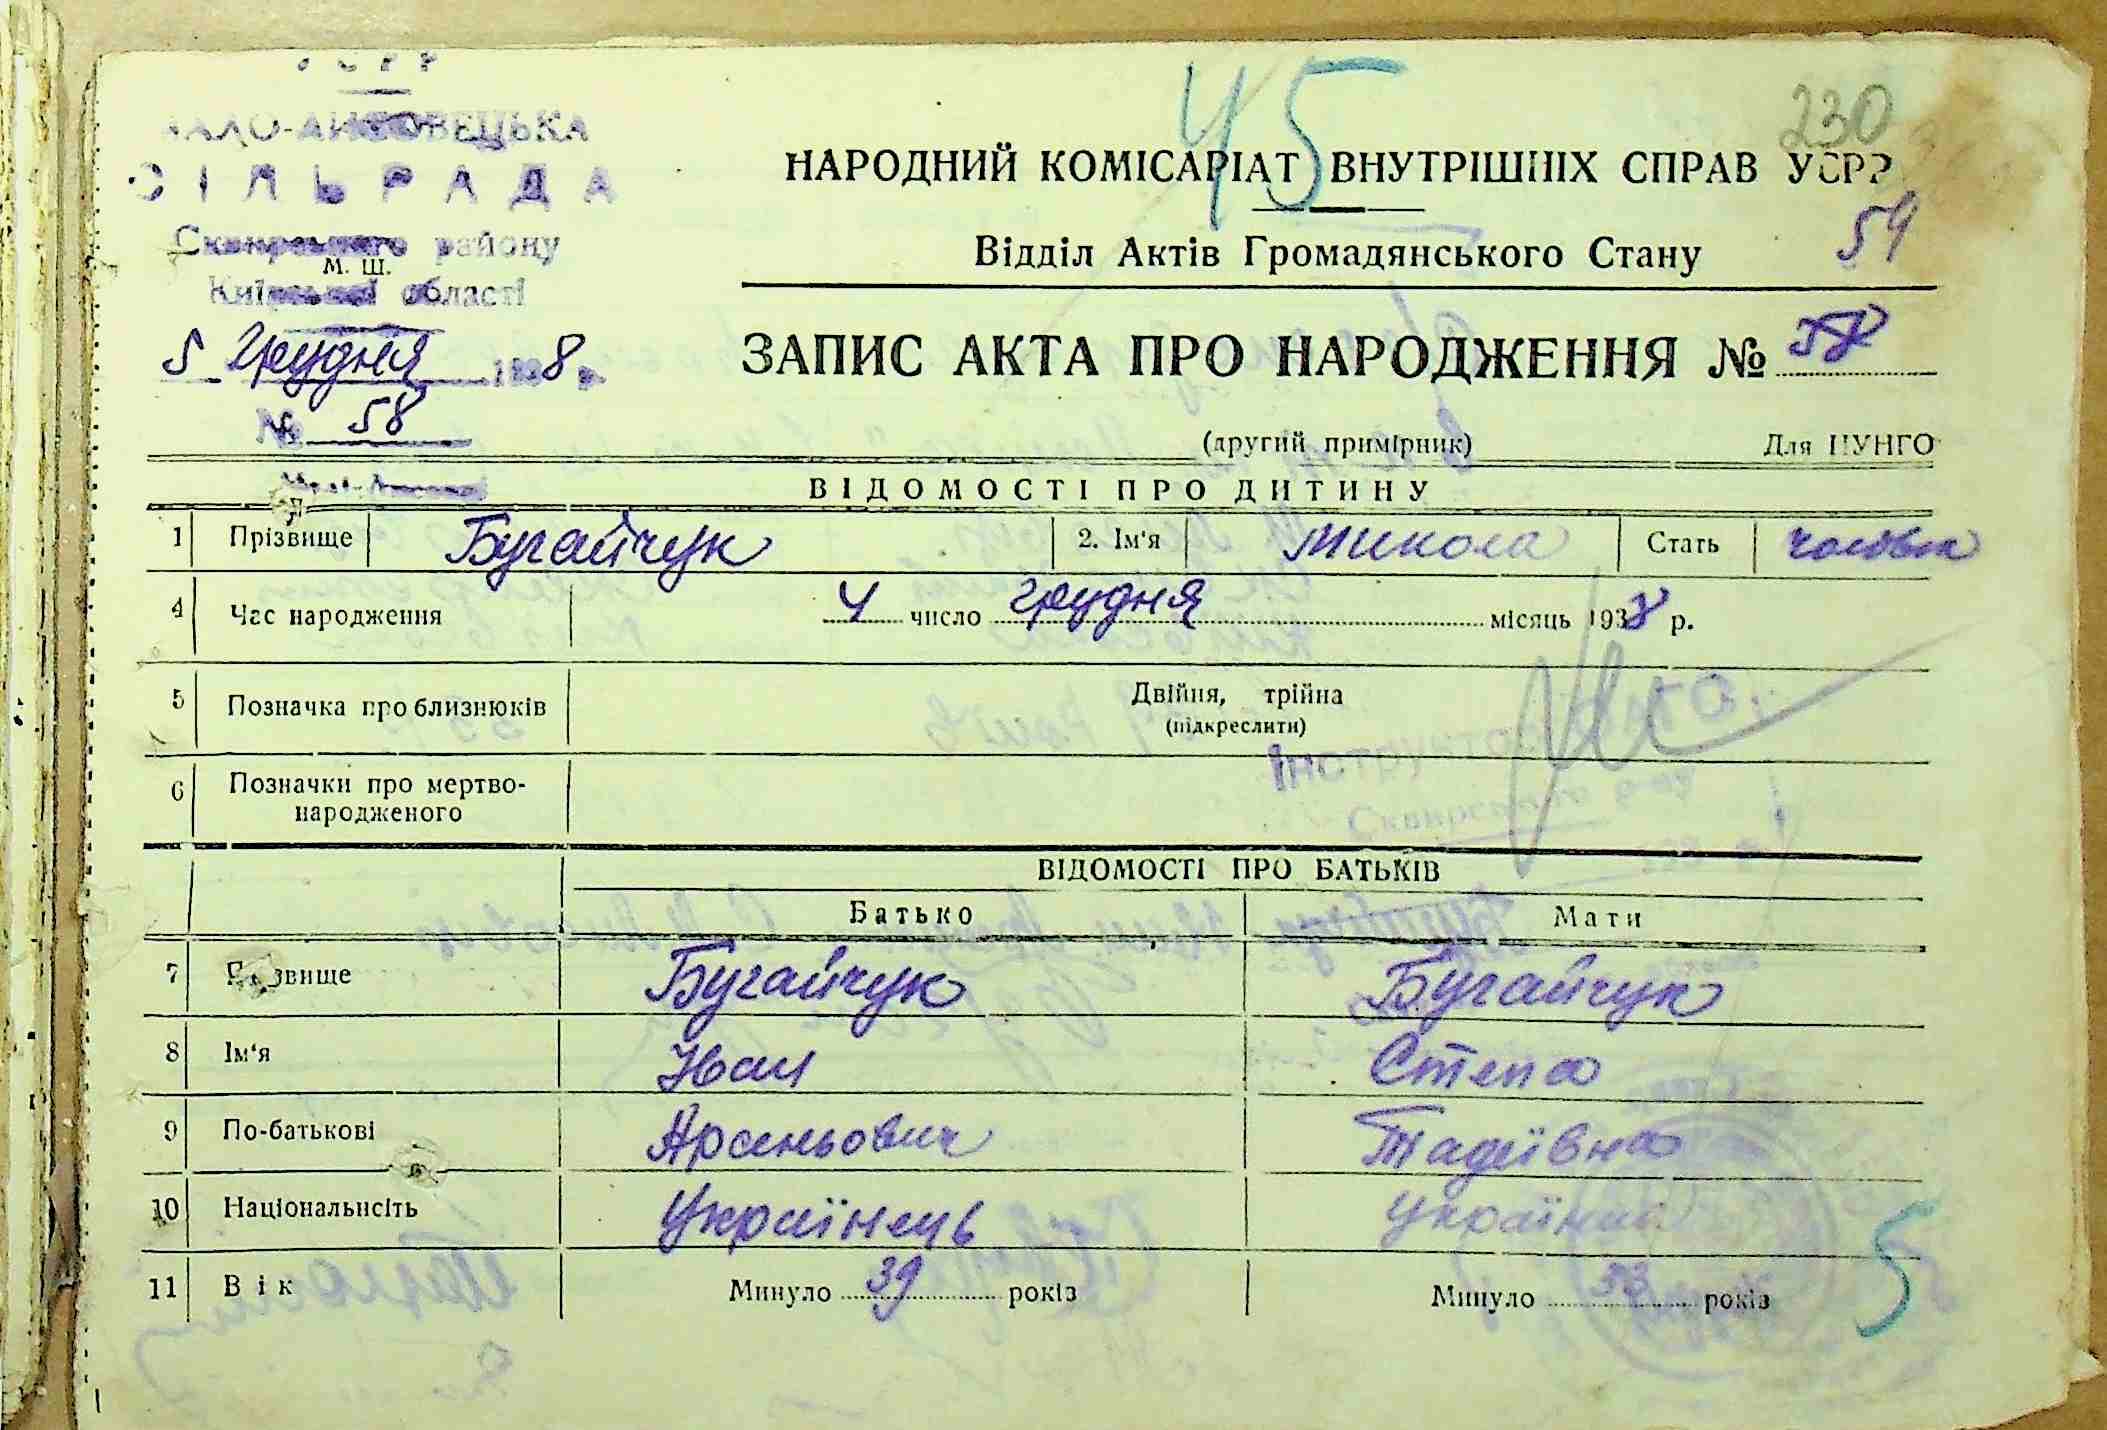 УСРР
МАЛО-АНТОВЕЦЬКА
СІЛЬРАДА
Сквирського району
М. Ш.
Київської області
5 Грудня 1938 р.
№ 58
45
230
НАРОДНИЙ КОМІСАРІАТ ВНУТРІШНІХ СПРАВ УСРР
Відділ Актів Громадянського Стану
59
ЗАПИС АКТА ПРО НАРОДЖЕННЯ № 58
(другий примірник) Для ЦУНГО
ВІДОМОСТІ ПРО ДИТИНУ
1 Прізвище Бугайчук 2. Ім'я Микола Стать чоловік
4 Час народження 4 число грудня місяць 1938 р.
5 Позначка про близнюків Двійня, трійна
(підкреслити)
Інструктор
Сквирського
6 Позначки про мертво-
народженого
ВІДОМОСТІ ПРО БАТЬКІВ
Батько Мати
7 Прізвище Бугайчук Бугайчук
8 Ім'я Іван Степа
9 По-батькові Арсеньович Тадеївна
10 Національність Українець Українка
11 Вік Минуло 39 років Минуло 33 років
5